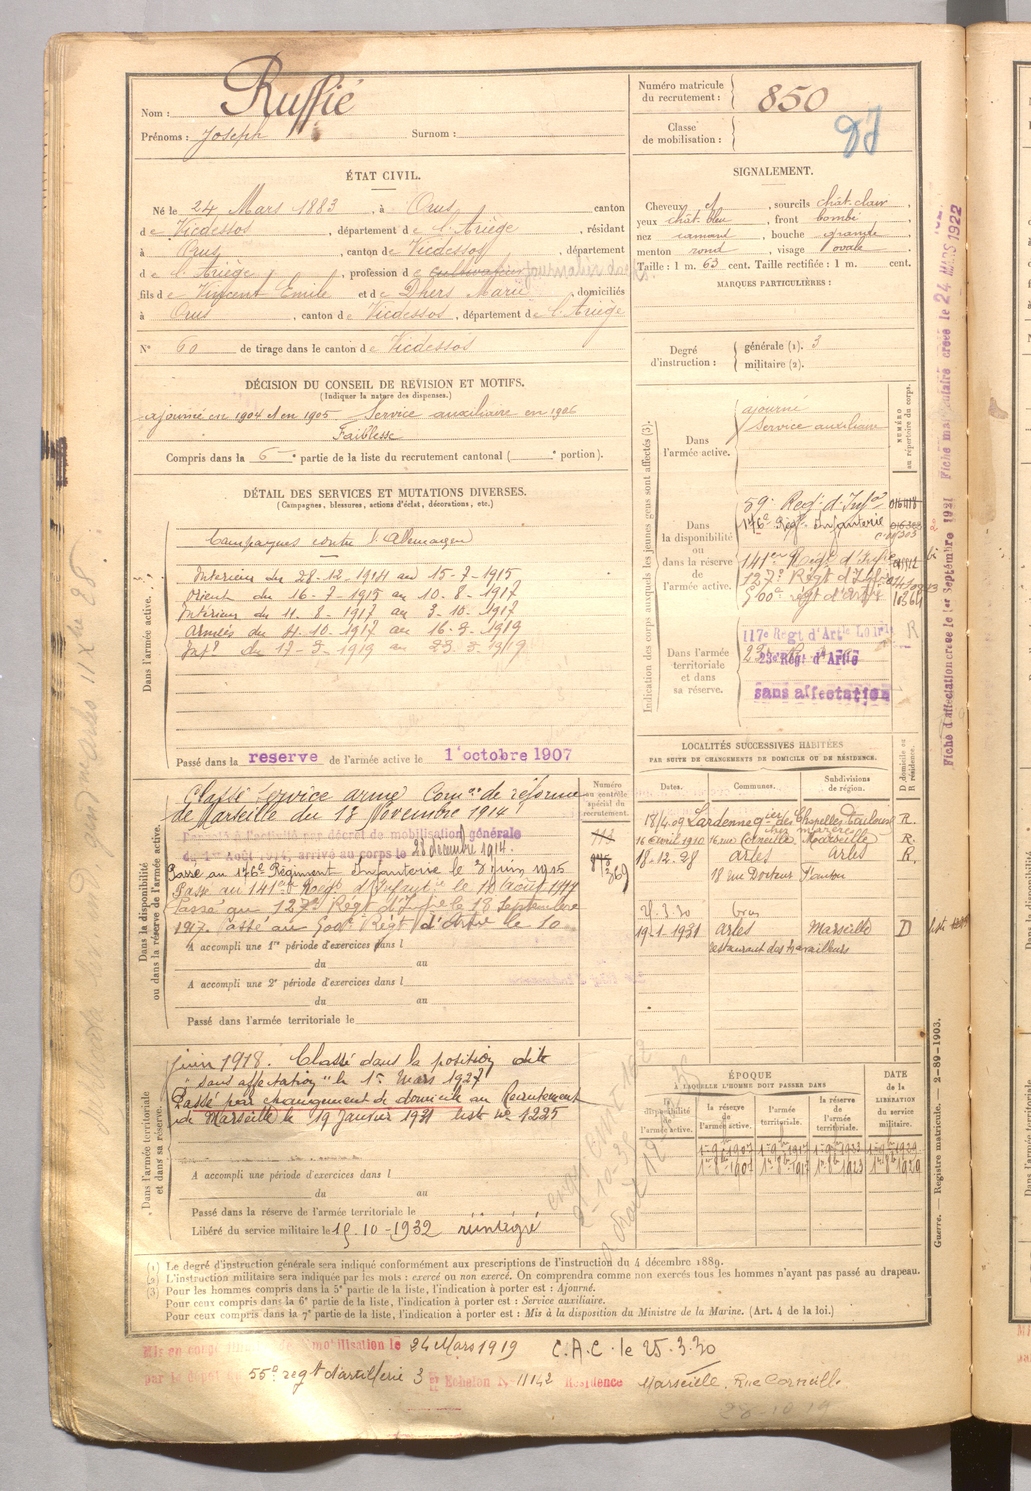 Nom : Ruffié
Prénoms : Joseph Surnom :
Numéro matricule du recrutement : 850
Classe de mobilisation :
ÉTAT CIVIL.
Né le 24 Mars 1883, à Orus, canton
de Vicdessos, département de l'Ariège, résidant
à Orus, canton de Vicdessos, département
de l'Ariège, profession de cultivateur journalier
fils de Vincent Emile et de Dhers Marie domiciliés
à Orus, canton de Vicdessos, département de l'Ariège
N° 60 de tirage dans le canton de Vicdessos
SIGNALEMENT.
Cheveux et, sourcils chât. clair
yeux chât. bleu, front bombé,
nez camard, bouche grande
menton rond, visage ovale
Taille : 1 m. 63 cent. Taille rectifiée : 1 m. cent.
MARQUES PARTICULIÈRES :
Degré d'instruction : générale (1). 3
militaire (2).
DÉCISION DU CONSEIL DE REVISION ET MOTIFS.
(Indiquer la nature des dispenses.)
ajourné en 1904 et en 1905 Service auxiliaire en 1906
Faiblesse
Compris dans la 6e partie de la liste du recrutement cantonal ( e portion).
DÉTAIL DES SERVICES ET MUTATIONS DIVERSES.
(Campagnes, blessures, actions d'éclat, décorations, etc.)
Dans l'armée active.
Campagnes contre l'Allemagne
Intérieur du 28-12-1914 au 15-7-1915
Orient du 16-7-1915 au 10-8-1917
Intérieur du 11-8-1917 au 3-10-1917
Armées du 4-10-1917 au 16-3-1919
Intr du 17-3-1919 au 23-3-1919
Passé dans la reserve de l'armée active le 1 octobre 1907
Indication des corps auxquels les jeunes gens sont affectés (3).
NUMÉRO au répertoire du corps.
Dans l'armée active.
ajourné
Service auxiliaire
Dans la disponibilité ou dans la réserve de l'armée active.
59e Regt d'Infie
176e Régt Infanterie
141e Régt d'Infie
127e Régt d'Infie
500e régt d'Artie
Dans l'armée territoriale et dans sa réserve.
117e Regt d'Artie Lourde
23e Regt d'Artie
sans affectation
Dans la disponibilité ou dans la réserve de l'armée active.
Numéro au contrôle spécial du recrutement.
Classé Service armé Comon de réforme
de Marseille du 18 Novembre 1914
Rappelé à l'activité par décret de mobilisation générale
du 1er Août 1914, arrivé au corps le 28 décembre 1914.
Passé au 176e Régiment Infanterie le 3 juin 1915
Passé au 141e Régt d'Infantie le 11 Août 1917
Passé au 127e Régt d'Infie le 18 Septembre
1917. Passé au 500e Régt d'Artie le 10
A accompli une 1re période d'exercices dans l
du au
A accompli une 2e période d'exercices dans l
du au
Passé dans l'armée territoriale le
LOCALITÉS SUCCESSIVES HABITÉES
PAR SUITE DE CHANGEMENTS DE DOMICILE OU DE RÉSIDENCE.
Dates. Communes. Subdivisions de région. D domicile ou R résidence.
18/4.09 Lardenne Toulouse R.
16 Avril 1910 16 rue Corneille Marseille R.
18-12-28 Arles Arles R.
18 rue Docteur Fanton
25.3.30
19-1-1931 Arles Marseille D
restaurant des travailleurs
Dans l'armée territoriale et dans sa réserve.
juin 1918. Classé dans la position dite
"sans affectation" le 1er Mars 1927
Passé par changement de domicile au Recrutement
de Marseille le 19 Janvier 1931 liste no 1225
A accompli une période d'exercices dans l
du au
Passé dans la réserve de l'armée territoriale le
Libéré du service militaire le 15-10-1932 réintégré
ÉPOQUE
À LAQUELLE L'HOMME DOIT PASSER DANS
la disponibilité de l'armée active. la réserve de l'armée active. l'armée territoriale. la réserve de l'armée territoriale.
DATE de la LIBÉRATION du service militaire.
(1) Le degré d'instruction générale sera indiqué conformément aux prescriptions de l'instruction du 4 décembre 1889.
(2) L'instruction militaire sera indiquée par les mots : exercé ou non exercé. On comprendra comme non exercés tous les hommes n'ayant pas passé au drapeau.
(3) Pour les hommes compris dans la 5e partie de la liste, l'indication à porter est : Ajourné.
Pour ceux compris dans la 6e partie de la liste, l'indication à porter est : Service auxiliaire.
Pour ceux compris dans la 7e partie de la liste, l'indication à porter est : Mis à la disposition du Ministre de la Marine. (Art. 4 de la loi.)
Mis en congé illimité de démobilisation le 24 Mars 1919 C.A.C. le 25.3.30
par le dépôt 55e regt d'artillerie 3e Echelon N° 11142 Résidence Marseille, Rue Corneille
28-10-19
Guerre. — Registre matricule. — 2-89-1903.
Fiche d'affectation créée le 1er Septembre 1921 Fiche matriculaire créée le 24 MARS 1922